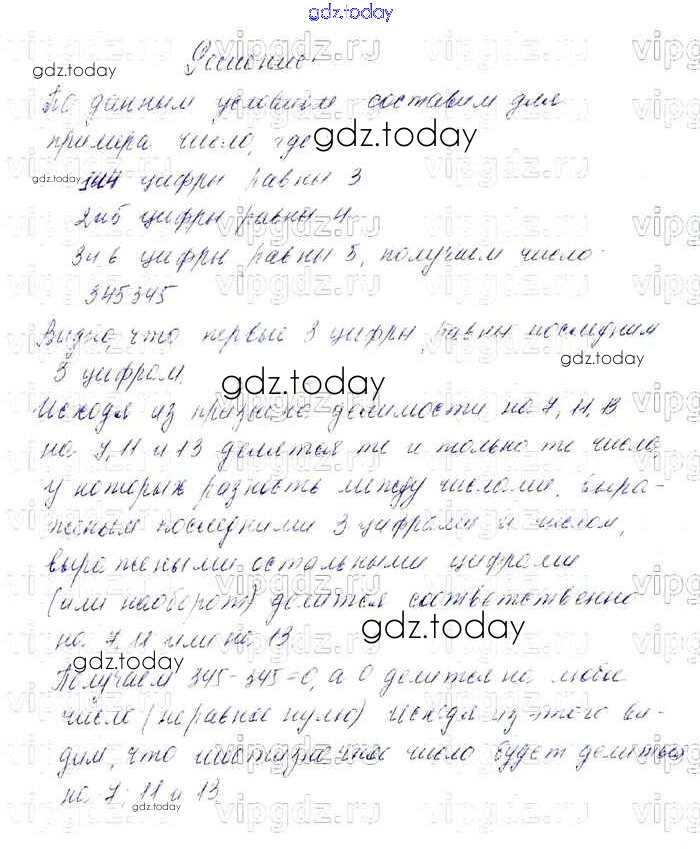 gdz.today
Решение.
По данным условиям составим для
примера число, где
1и4 цифры равны 3
2и5 цифры равны 4
3и6 цифры равны 5, получаем число:
345345
Видно, что первые 3 цифры равны последним
3 цифрам.
Исходя из признака делимости на 7, 11, 13
на 7, 11 и 13 делятся те и только те числа,
у которых разность между числами, выра-
женным последними 3 цифрами и числом,
выражеными остальными цифрами
(или наоборот) делится соответственно
на 7, 11 или на 13.
Получаем 345-345=0, а 0 делится на любое
число (неравное нулю) Исходя из этого ви-
дим, что шестизначное число будет делиться
на 7; 11 и 13